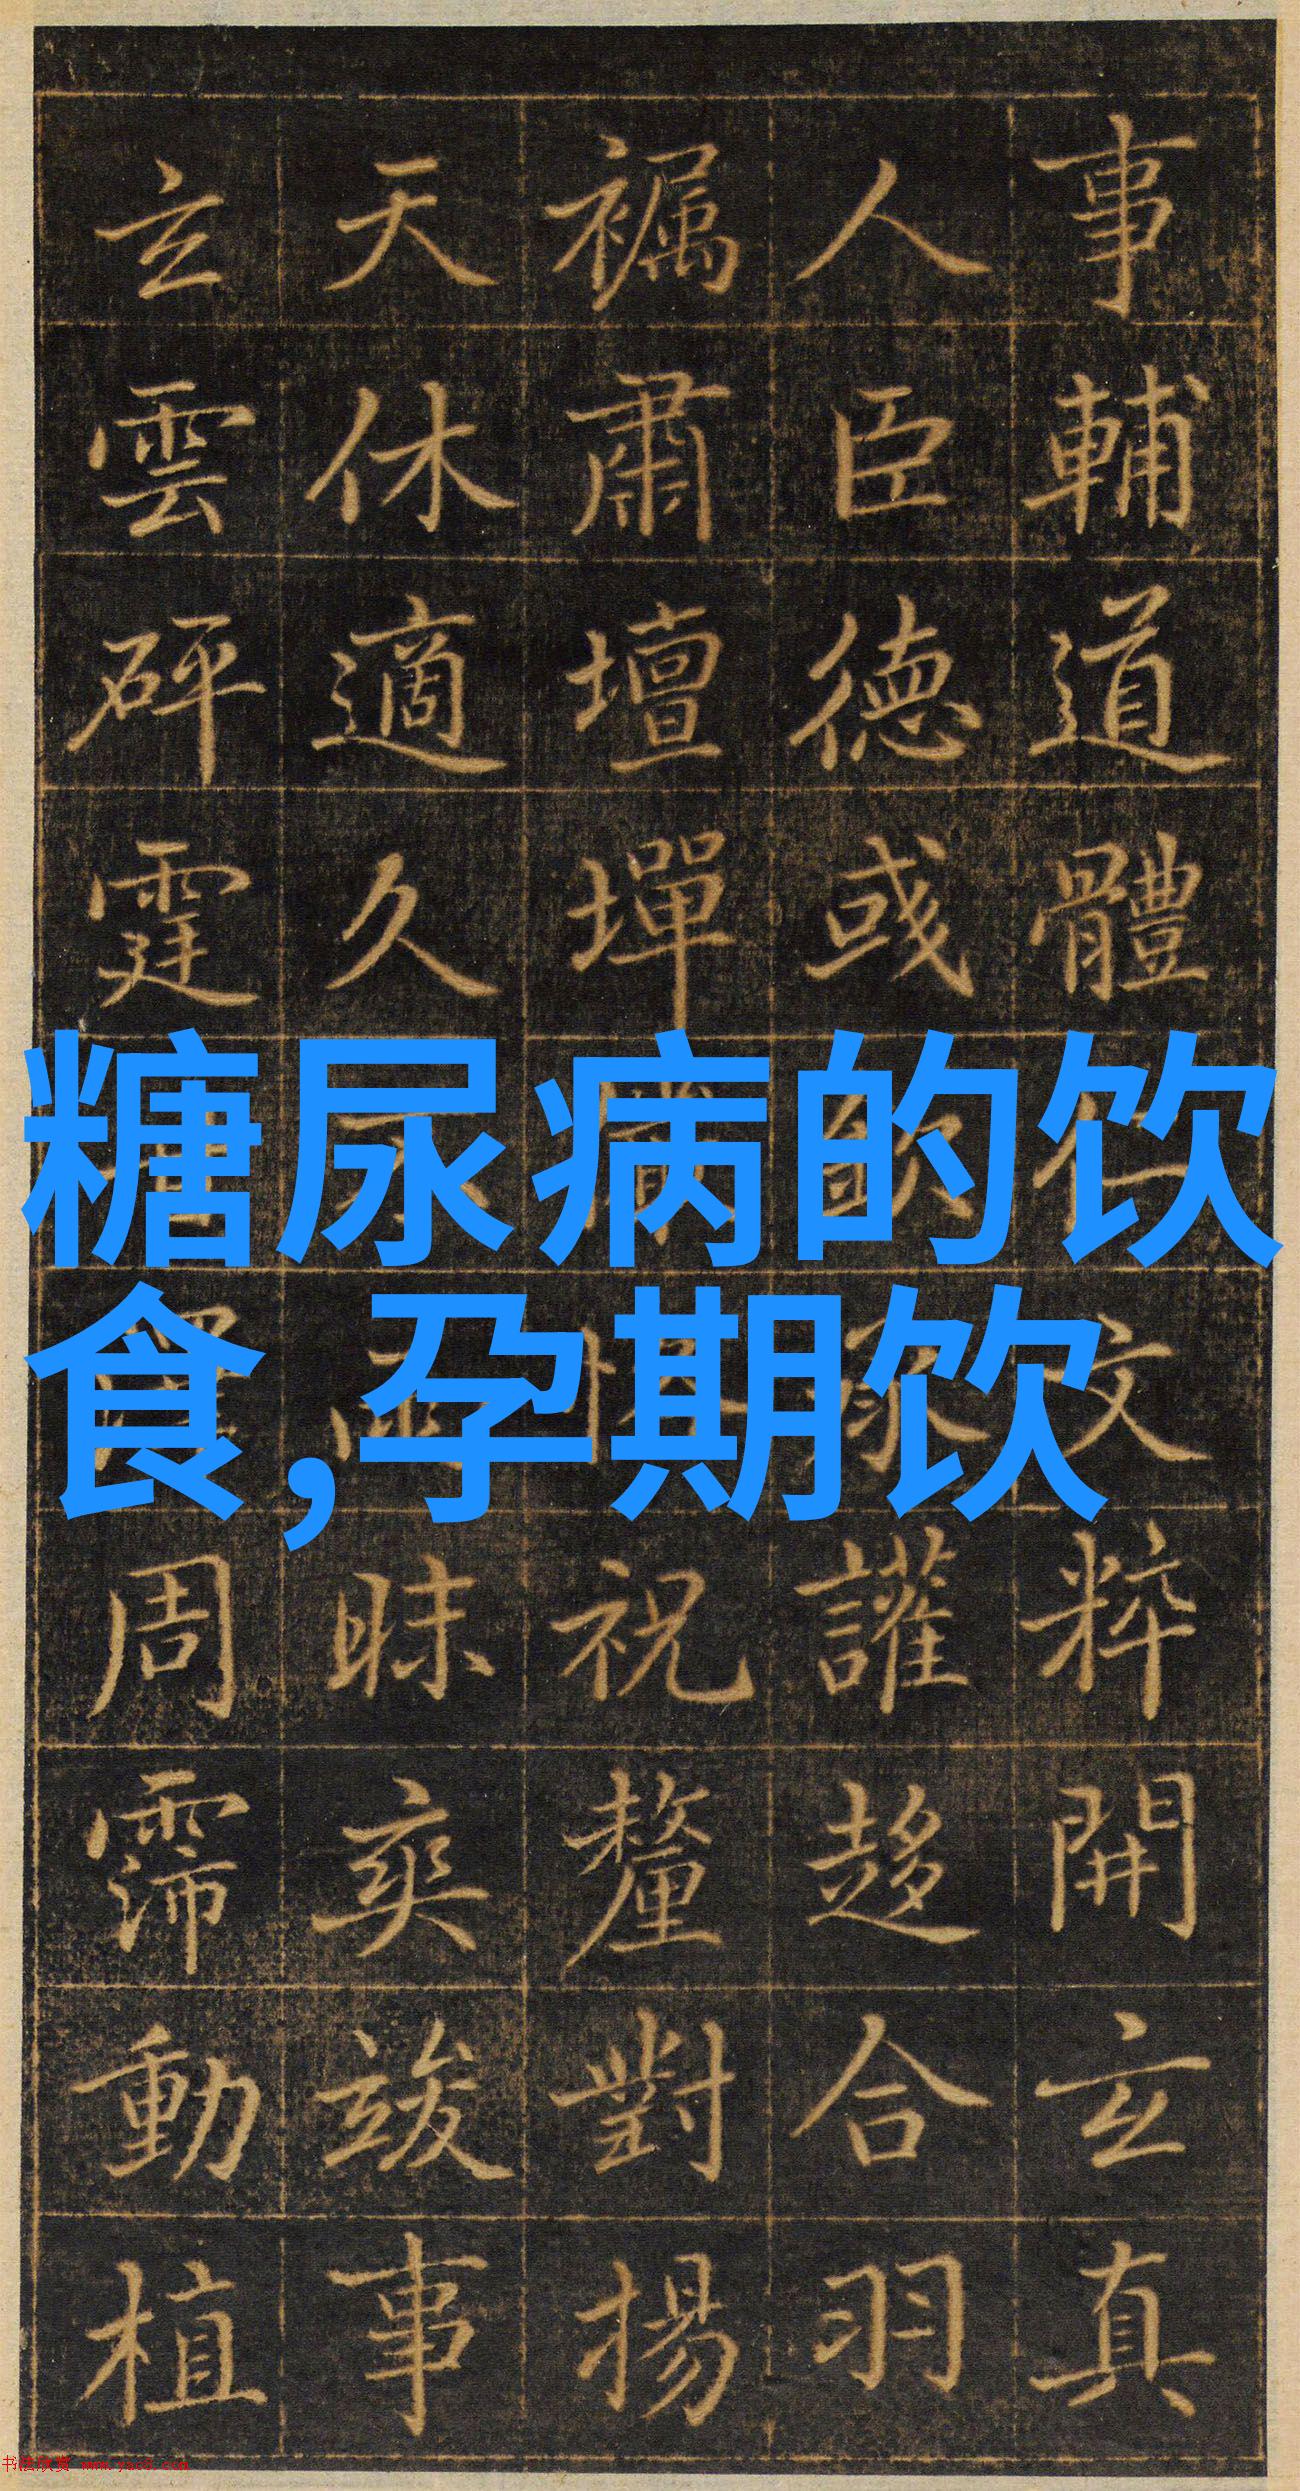 事輔道體仁文粹開玄真
人臣德或讙趍合羽
肅壇墠祝釐對揚
天休適久昧爽竢事
玄雲砰霆周霈動植
糖尿病的饮
食,孕期饮
书法欣赏 www.yac8.com